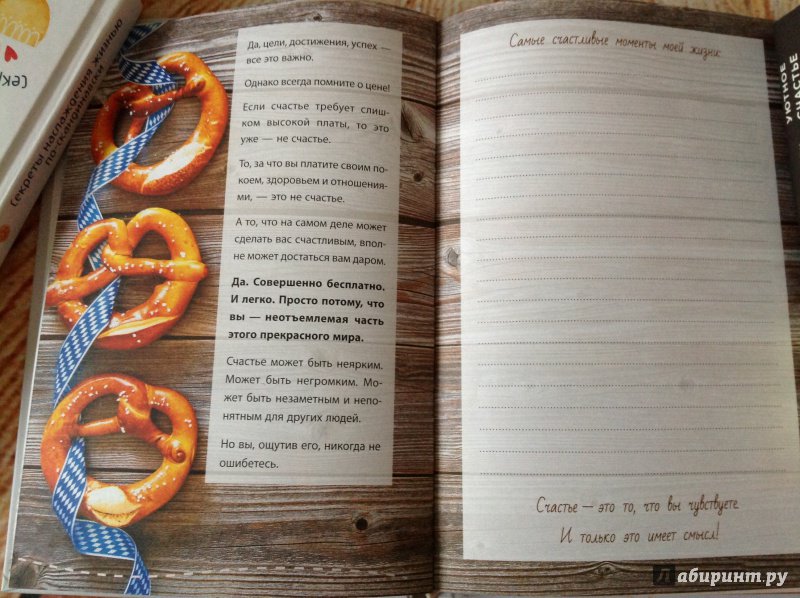 Да, цели, достижения, успех —
все это важно.
Однако всегда помните о цене!
Если счастье требует слиш-
ком высокой платы, то это
уже — не счастье.
То, за что вы платите своим по-
коем, здоровьем и отношения-
ми, — это не счастье.
А то, что на самом деле может
сделать вас счастливым, впол-
не может достаться вам даром.
Да. Совершенно бесплатно.
И легко. Просто потому, что
вы — неотъемлемая часть
этого прекрасного мира.
Счастье может быть неярким.
Может быть негромким. Мо-
жет быть незаметным и непо-
нятным для других людей.
Но вы, ощутив его, никогда не
ошибетесь.
Самые счастливые моменты моей жизни:
Счастье — это то, что вы чувствуете.
И только это имеет смысл!
Секреты наслаждения жизнью
по-скандинавски
УЮТНОЕ
СЧАСТЬЕ
Лабиринт.ру